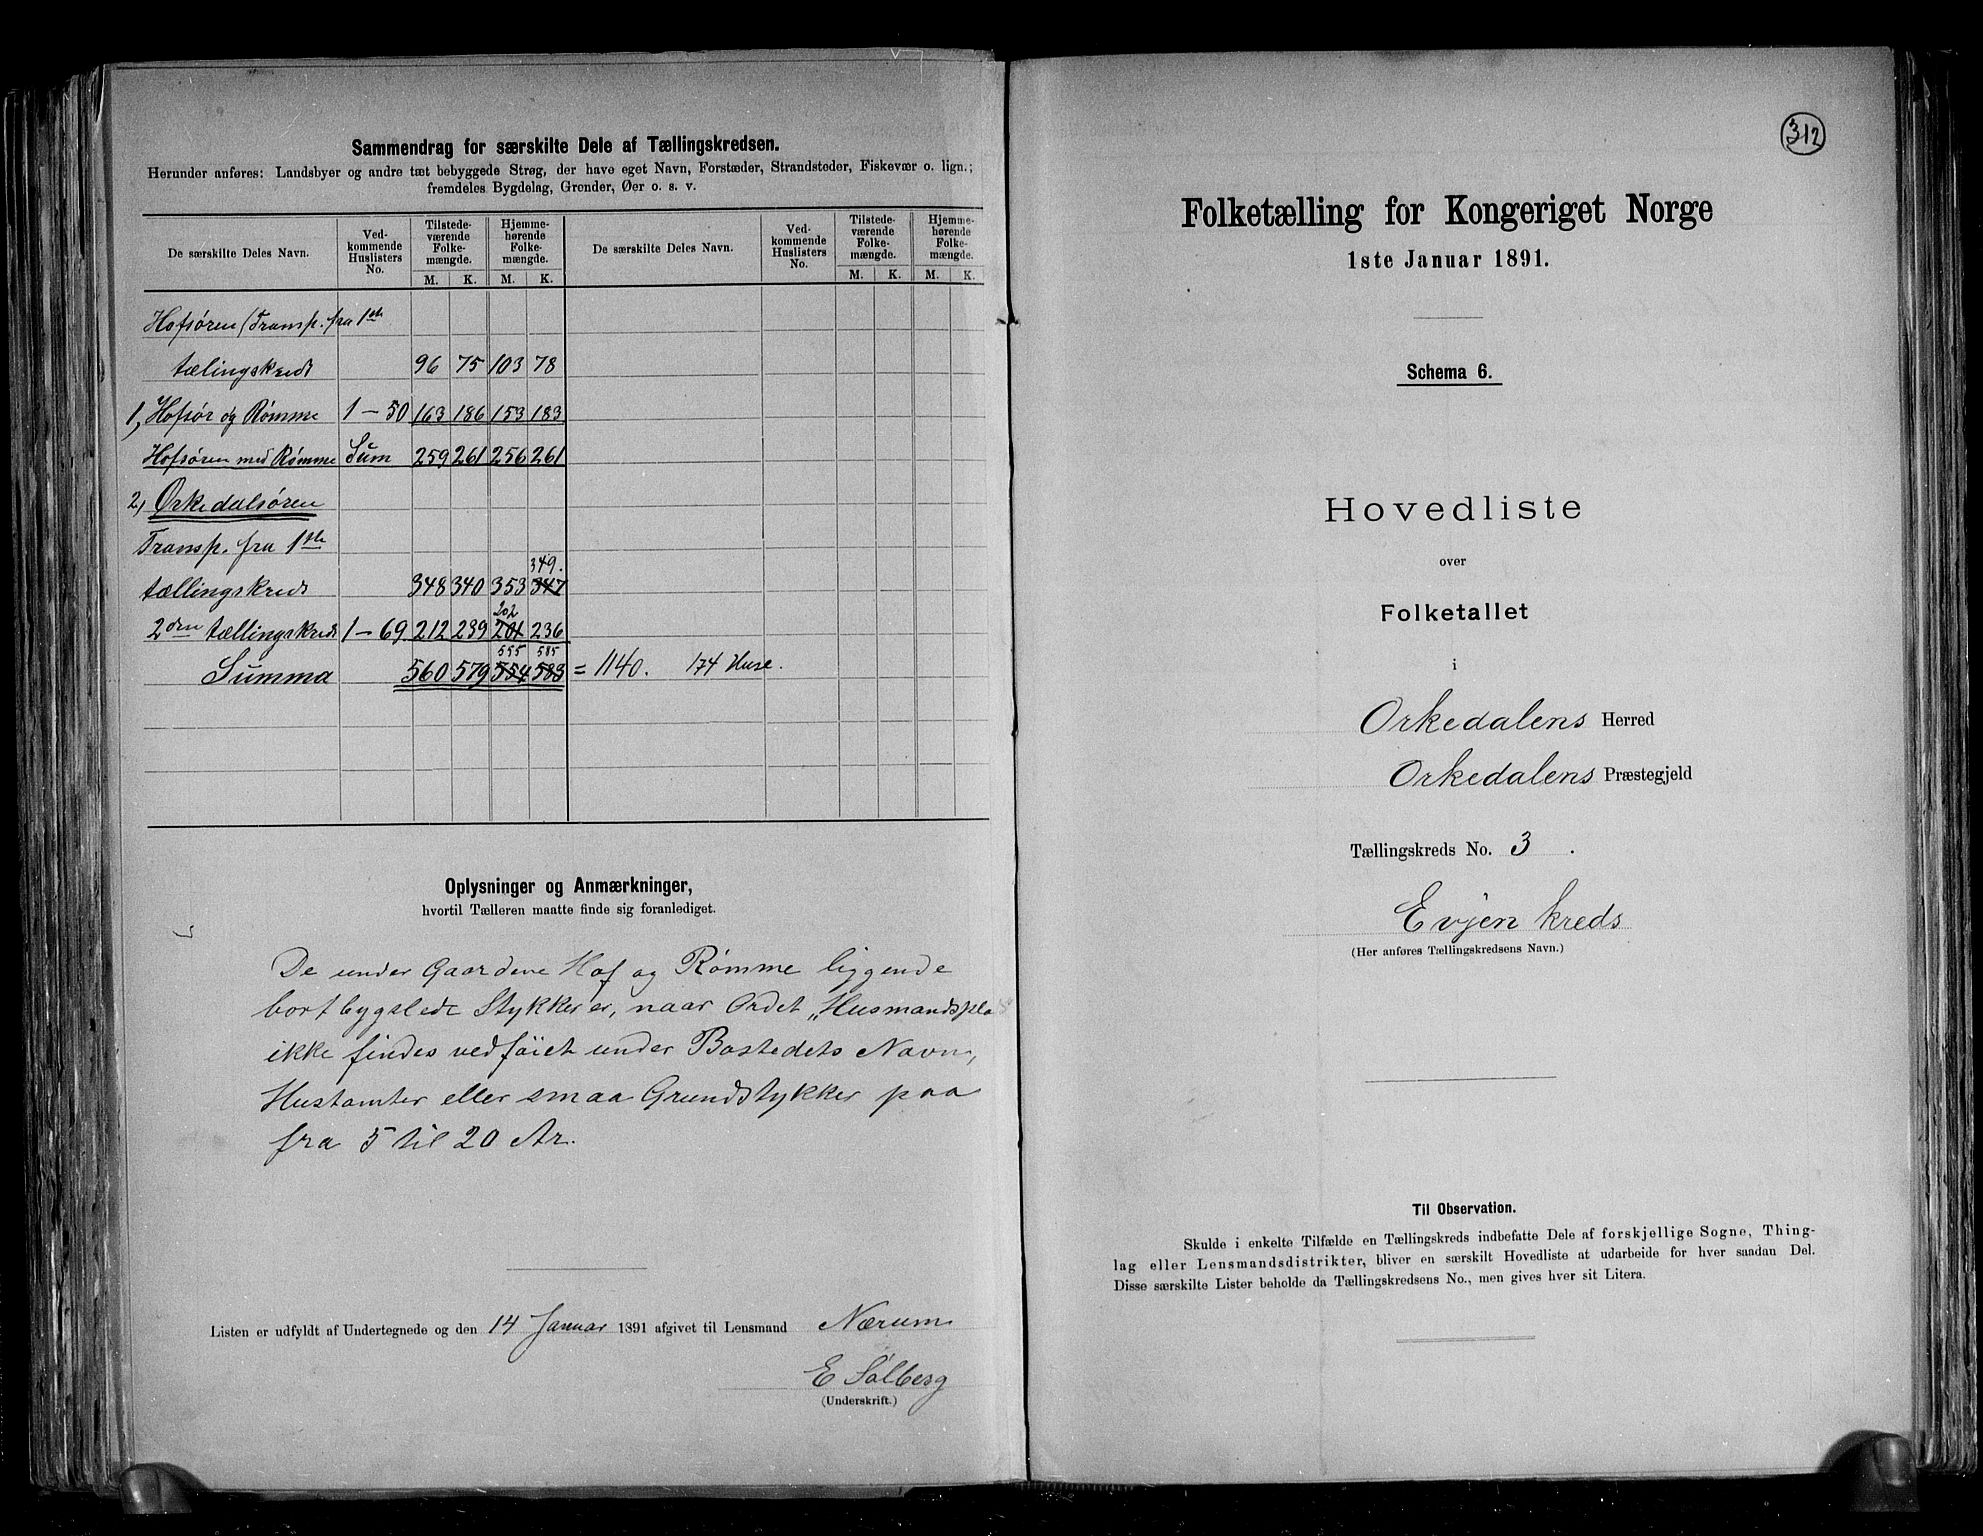 Sammendrag for særskilte Dele af Tællingskredsen.
Herunder anføres: Landsbyer og andre tæt bebyggede Strøg, der have eget Navn, Forstæder, Strandsteder, Fiskevær o. lign.;
fremdeles Bygdelag, Grender, Øer o. s. v.
De særskilte Deles Navn. Ved-kommende Huslisters No. Tilstede-værende Folke-mængde. Hjemme-hørende Folke-mængde. De særskilte Deles Navn. Ved-kommende Huslisters No. Tilstede-værende Folke-mængde. Hjemme-hørende Folke-mængde.
M. K. M. K. M. K. M. K.
Hofsøren (Transp. fra 1ste
tælingskreds 96 75 103 78
1, Hofsør og Rømme 1-50 163 186 153 183
Hofsøren med Rømme Sum 259 261 256 261
2, Ørkedalsøren
Transp. fra 1ste
349.
tællingskreds 348 340 353 347
202
2den tællingskreds 1-69 212 239 201 236
555 585
Summa 560 579 554 583 = 1140. 174 Huse.
Oplysninger og Anmærkninger,
hvortil Tælleren maatte finde sig foranlediget.
De under Gaardene Hof og Rømme liggende
bortbygslede Stykker er, naar Ordet „Husmandspla
ikke findes vedføiet under Bostedets Navn,
Hustomter eller smaa Grundstykker paa
fra 5 til 20 Ar.
Listen er udfyldt af Undertegnede og den 14 Januar 1891 afgivet til Lensmand Nærum
E Solberg
(Underskrift.)
312
Folketælling for Kongeriget Norge
1ste Januar 1891.
Schema 6.
Hovedliste
over
Folketallet
i
Orkedalens Herred
Orkedalens Præstegjeld
Tællingskreds No. 3.
Evjen kreds
(Her anføres Tællingskredsens Navn.)
Til Observation.
Skulde i enkelte Tilfælde en Tællingskreds indbefatte Dele af forskjellige Sogne, Thing-
lag eller Lensmandsdistrikter, bliver en særskilt Hovedliste at udarbeide for hver saadan Del.
Disse særskilte Lister beholde da Tællingskredsens No., men gives hver sit Litera.